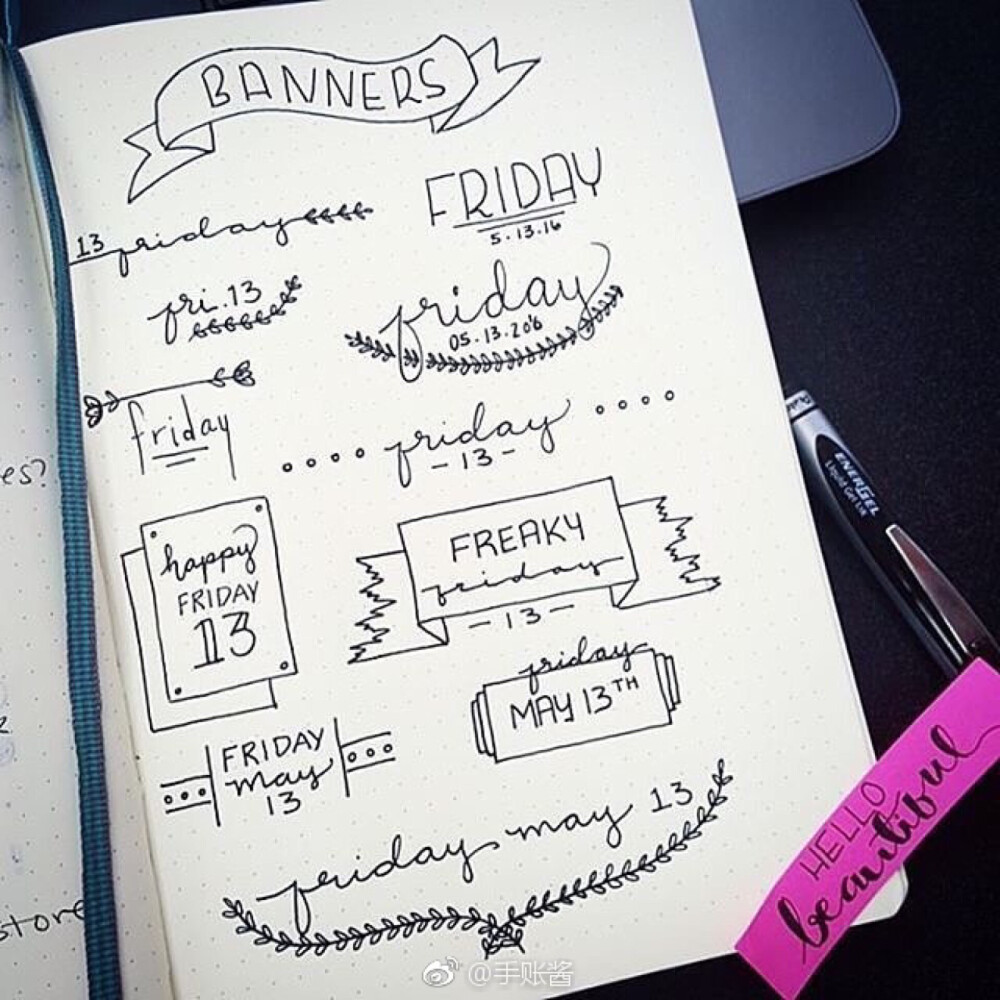 BANNERS
13 friday
FRIDAY
5.13.16
fri.13
friday
05.13.2016
friday
friday
-13-
happy
FRIDAY
13
FREAKY
friday
-13-
friday
MAY 13TH
FRIDAY
may
13
friday may 13
es?
store
ENERGEL
Liquid Gel Ink
HELLO
beautiful
@手账酱